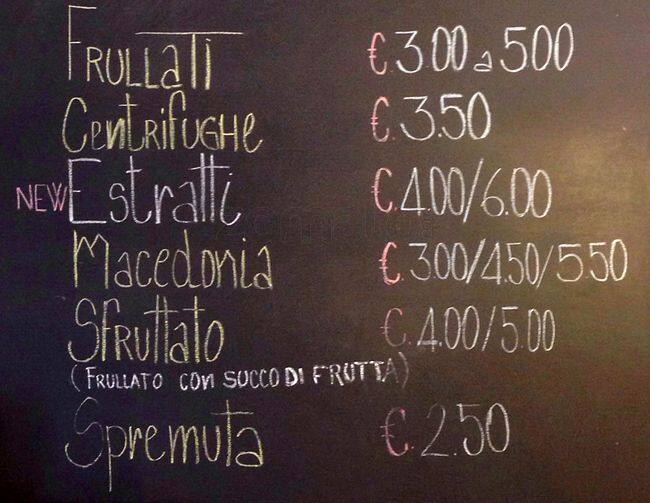 Frullati €.3.00 a 5.00
Centrifughe €.3.50
NEW Estratti €.4.00/6.00
Macedonia €.3.00/4.50/5.50
Sfruttato €.4.00/5.00
(FRULLATO CON SUCCO DI FRUTTA)
Spremuta €.2.50